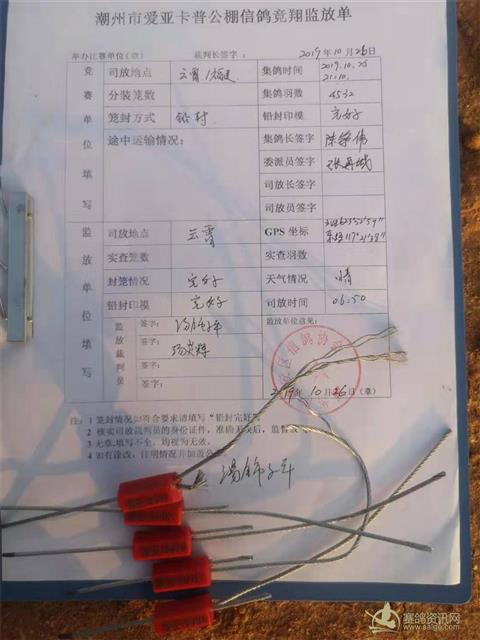 潮州市爱亚卡普公棚信鸽竞翔监放单
举办比赛单位(章) 裁判长签字: 2019年10月26日
竞赛单位填写
司放地点 云霄/福建 集鸽时间 2019.10.25 21:10.
分装笼数 集鸽羽数 4532
笼封方式 铅封 铅封印模 完好
途中运输情况: 集鸽长签字
委派员签字
司放长签字
司放员签字
监放单位填写
司放地点 云霄 GPS 坐标
实查笼数 实查羽数
封笼情况 完好 天气情况 晴
铅封印模 完好 司放时间 06:50
监放裁判员 签字: 监放单位意见:
签字:
签字:
区信鸽协会
2019年10月26日(章)
注: 1 笼封情况如符合要求请填写“铅封完好”。
2 核实司放裁判员的身份证件,准确无误后,监督
3 无章,填写不全,均视为无效。
4 如有涂改,注明情况并加盖公
赛鸽资讯网
www.saige.com